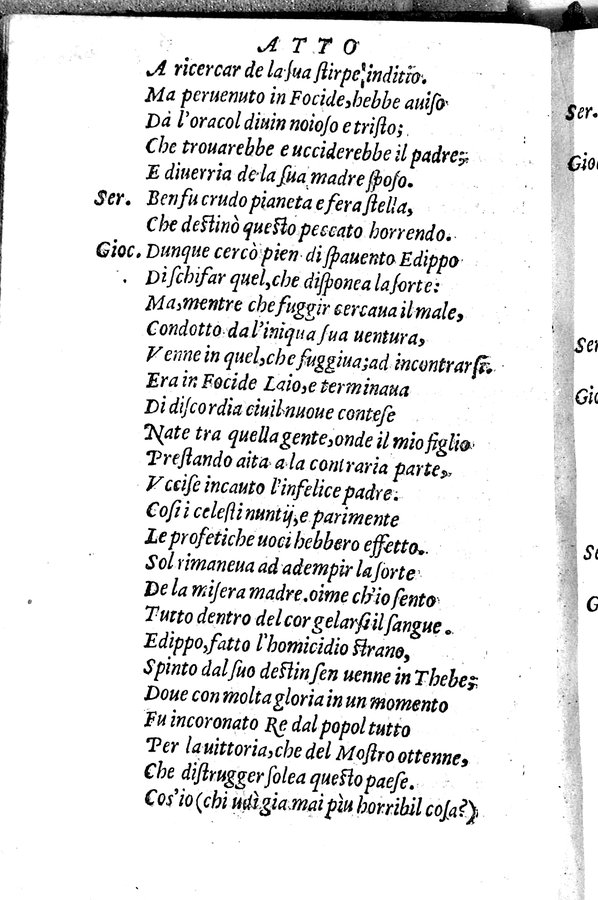 ATTO
A ricercar de la ſua ſtirpe inditio.
Ma peruenuto in Focide, hebbe auiſo
Da l'oracol diuin noioſo e triſto;
Che trouarebbe e ucciderebbe il padre;
E diuerria de la ſua madre ſpoſo.
Ser. Ben fu crudo pianeta e fera ſtella,
Che deſtinò queſto peccato horrendo.
Gioc. Dunque cercò pien di ſpauento Edippo
Di ſchifar quel, che diſponea la ſorte:
Ma, mentre che fuggir cercaua il male,
Condotto da l'iniqua ſua uentura,
Venne in quel, che fuggiua; ad incontrarſi.
Era in Focide Laio, e terminaua
Di diſcordia ciuil nuoue conteſe
Nate tra quella gente, onde il mio figlio
Preſtando aita a la contraria parte,
Vcciſe incauto l'infelice padre.
Coſi i celeſti nuntij, e parimente
Le profetiche uoci hebbero effetto.
Sol rimaneua ad adempir la ſorte
De la miſera madre. oime ch'io ſento
Tutto dentro del cor gelarſi il ſangue.
Edippo, fatto l'homicidio ſtrano,
Spinto dal ſuo deſtin ſen uenne in Thebe;
Doue con molta gloria in un momento
Fu incoronato Re dal popol tutto
Per la uittoria, che del Moſtro ottenne,
Che diſtrugger ſolea queſto paeſe.
Cos'io (chi udì gia mai più horribil coſa?)
Ser.
Gioc
Ser
Gio
Se
G